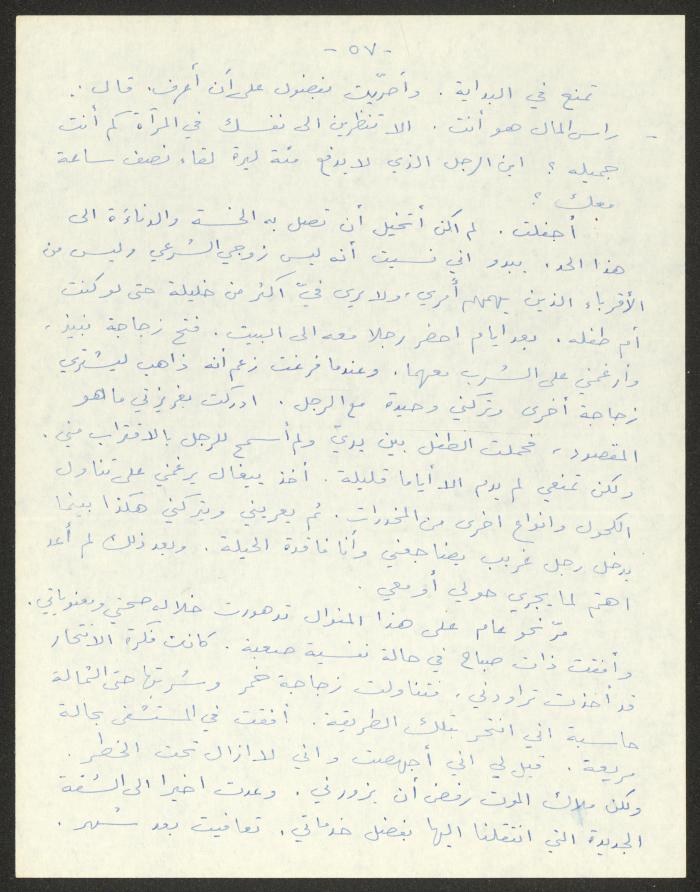 - ٥٧ -
تمنع في البداية . وأصرّيت بفضول على أن أعرف. قال :
- راس المال هو أنت . الا تنظرين الى نفسك في المرآة كم أنت
جميله ؟ اين الرجل الذي لا يدفع مئة ليرة لقاء نصف ساعة
معك ؟
أجفلت . لم اكن أتخيل أن تصل به الخسة والدناءة الى
هذا الحد . يبدو اني نسيت أنه ليس زوجي الشرعي وليس من
الأقرباء الذين يهمهم أمري، ولا يرى فيّ اكثر من خليلة حتى لو كنت
أم طفله . بعد ايام احضر رجلا معه الى البيت . فتح زجاجة نبيذ ،
وأرغمني على الشرب معهما . وعندما فرغت زعم أنه ذاهب ليشتري
زجاجة أخرى وتركني وحيدة مع الرجل . ادركت بغريزتي ما هو
المقصود ، فحملت الطفل بين يديّ ولم أسمح للرجل بالاقتراب مني .
ولكن تمنعي لم يدم الا أياما قليلة . أخذ بيغال يرغمني على تناول
الكحول وانواع اخرى من المخدرات . ثم يعريني ويتركني هكذا بينما
يدخل رجل غريب يضاجعني وأنا فاقدة الحيلة . وبعد ذلك لم أعد
اهتم لما يجري حولي أو معي .
مرّ نحو عام على هذا المنوال تدهورت خلاله صحتي ومعنوياتي .
وأفقت ذات صباح في حالة نفسية صعبة . كانت فكرة الانتحار
قد أخذت تراودني ، فتناولت زجاجة خمر وشربتها حتى الثمالة
حاسبة اني انتحر بتلك الطريقة . أفقت في المستشفى بحالة
مريعة . قيل لي اني أجهضت واني لا ازال تحت الخطر .
ولكن ملاك الموت رفض أن يزورني . وعدت اخيرا الى الشقة
الجديدة التي انتقلنا اليها بفضل خدماتي . تعافيت بعد شهر .